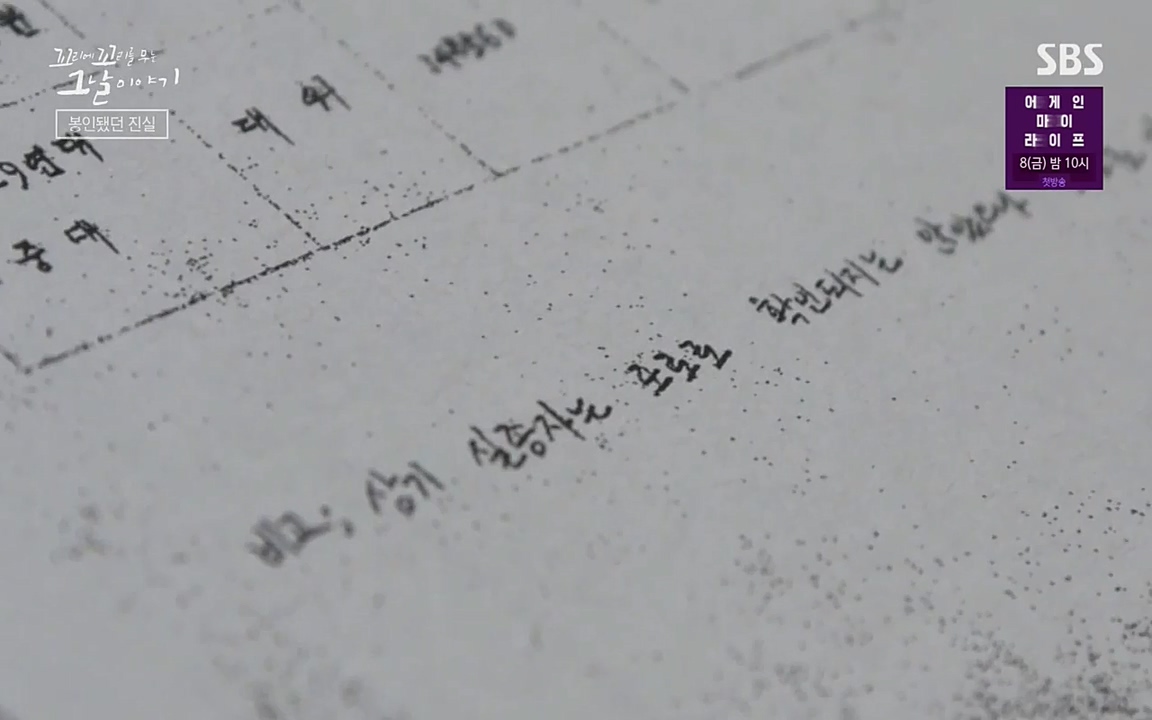 꼬리에 꼬리를 무는
그날 이야기
봉인됐던 진실
SBS
어게인
마이
라이프
8(금) 밤 10시
첫방송
대위
29연대
중대
비고; 상기 실종자는 포로로 확인되지는 않았으나